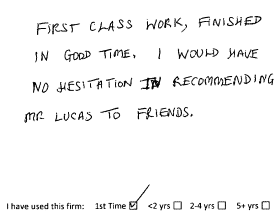 FIRST CLASS WORK, FINISHED
IN GOOD TIME. I WOULD HAVE
NO HESITATION IN RECOMMENDING
MR LUCAS TO FRIENDS.
I have used this firm: 1st Time ☑ <2 yrs ☐ 2-4 yrs ☐ 5+ yrs ☐